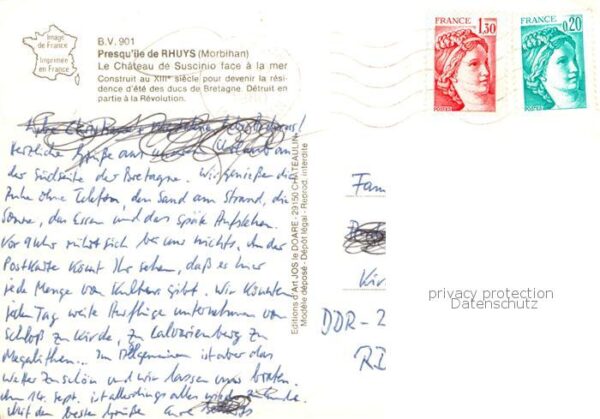 Image
de France
Imprimée
en France
B.V. 901
Presqu'île de RHUYS (Morbihan)
Le Château de Suscinio face à la mer
Construit au XIIIe siècle pour devenir la rési-
dence d'été des ducs de Bretagne. Détruit en
partie à la Révolution.
FRANCE
1,30
FRANCE
0,20
Herzliche Grüße aus unserem Urlaub an
der Südseite der Bretagne. Wir genießen die
Ruhe ohne Telefon, den Sand am Strand, die
Sonne, das Essen und das späte Aufstehen.
Vor 9 Uhr rührt sich bei uns nichts. An der
Postkarte könnt Ihr sehen, daß es hier
jede Menge von Kultur gibt. Wir könnten
jeden Tag weite Ausflüge unternehmen von
Schloß zu Kirche, zu Calvarienberg zu
Megalithen... Im Allgemeinen ist aber das
Wetter zu schön und wir lassen uns braten.
Am 14. Sept. ist allerdings alles zu Ende.
Mit den besten Grüße
Editions d'Art JOS le DOARE - 29150 CHATEAULIN
Modèle déposé - Dépôt légal - Reprod. interdite
Fam
Kir
DDR-2
privacy protection
Datenschutz